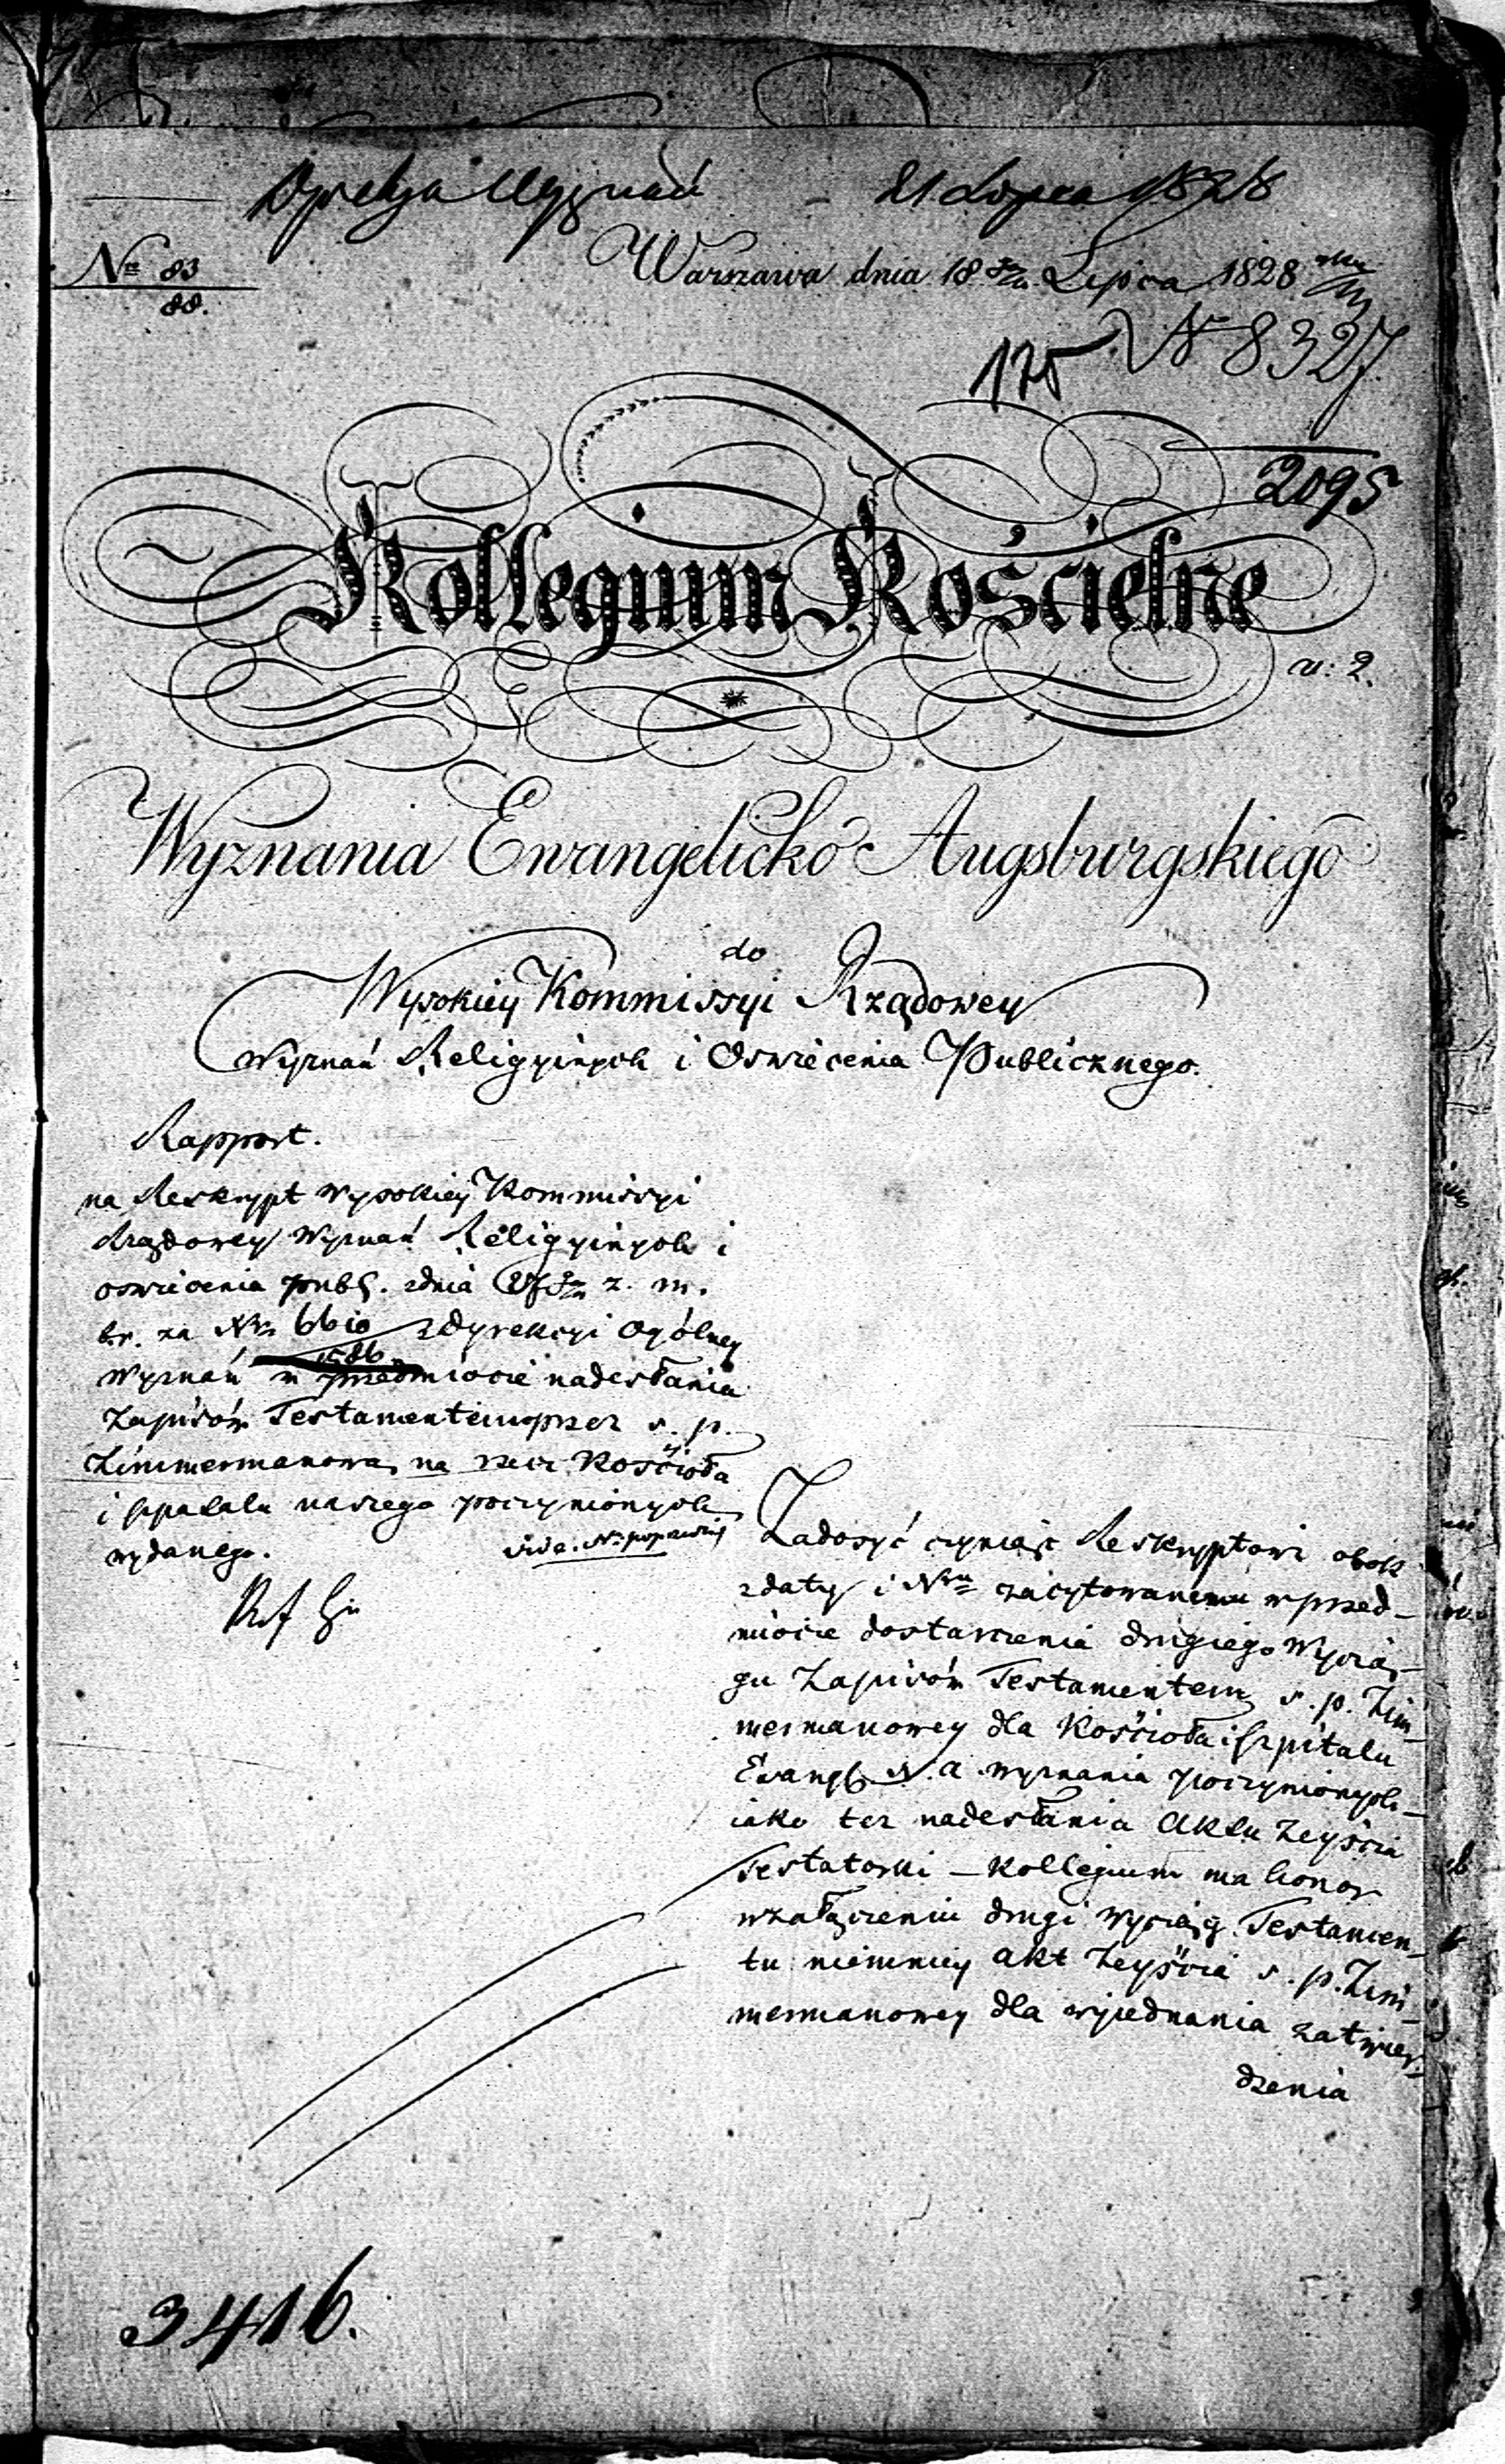 Dyrekcja Wyznań – 21 Lipca 1828
Nro 83
88.
Warszawa dnia 18 Lipca 1828
175 № 8327
2095
Kollegium Kościelne
v: 2.
Wyznania Ewangelicko Augsburgskiego
do
Wysokiey Kommissyi Rządowey
Wyznań Religyinych i Oswiecenia Publicznego.
Rapport.
na Reskrypt Wysokiey Kommissyi
Rządowey Wyznań Religyinych i
oswiecenia publ. zdnia z. m.
br. za Nrm 6610 zdyrekcyi Ogólney
1586
Wyznań w przedmiocie nadesłania
Zapisów Testamentem przez s. p.
Zimmermanową na rzecz Kościoła
i szpitalu naszego poczynionych
wydanego.
vide: N: poprzedni
Zadosyć czyniąc Reskryptowi obok
zdaty i Nru zacytowanemu w przed-
miocie dostarczenia drugiego Wycią-
gu Zapisów Testamentem s. p. Zim-
mermanowey dla Kościoła i szpitalu
Evangl. A. wyznania poczynionych
iako tez nadesłania Aktu Zeyścia
Testatorki – Kollegium ma honor
wzałączeniu drugi wyciąg Testamen-
tu niemniey akt Zeyścia s. p. Zim-
mermanowey dla wyjednania zatwier-
dzenia
3416.